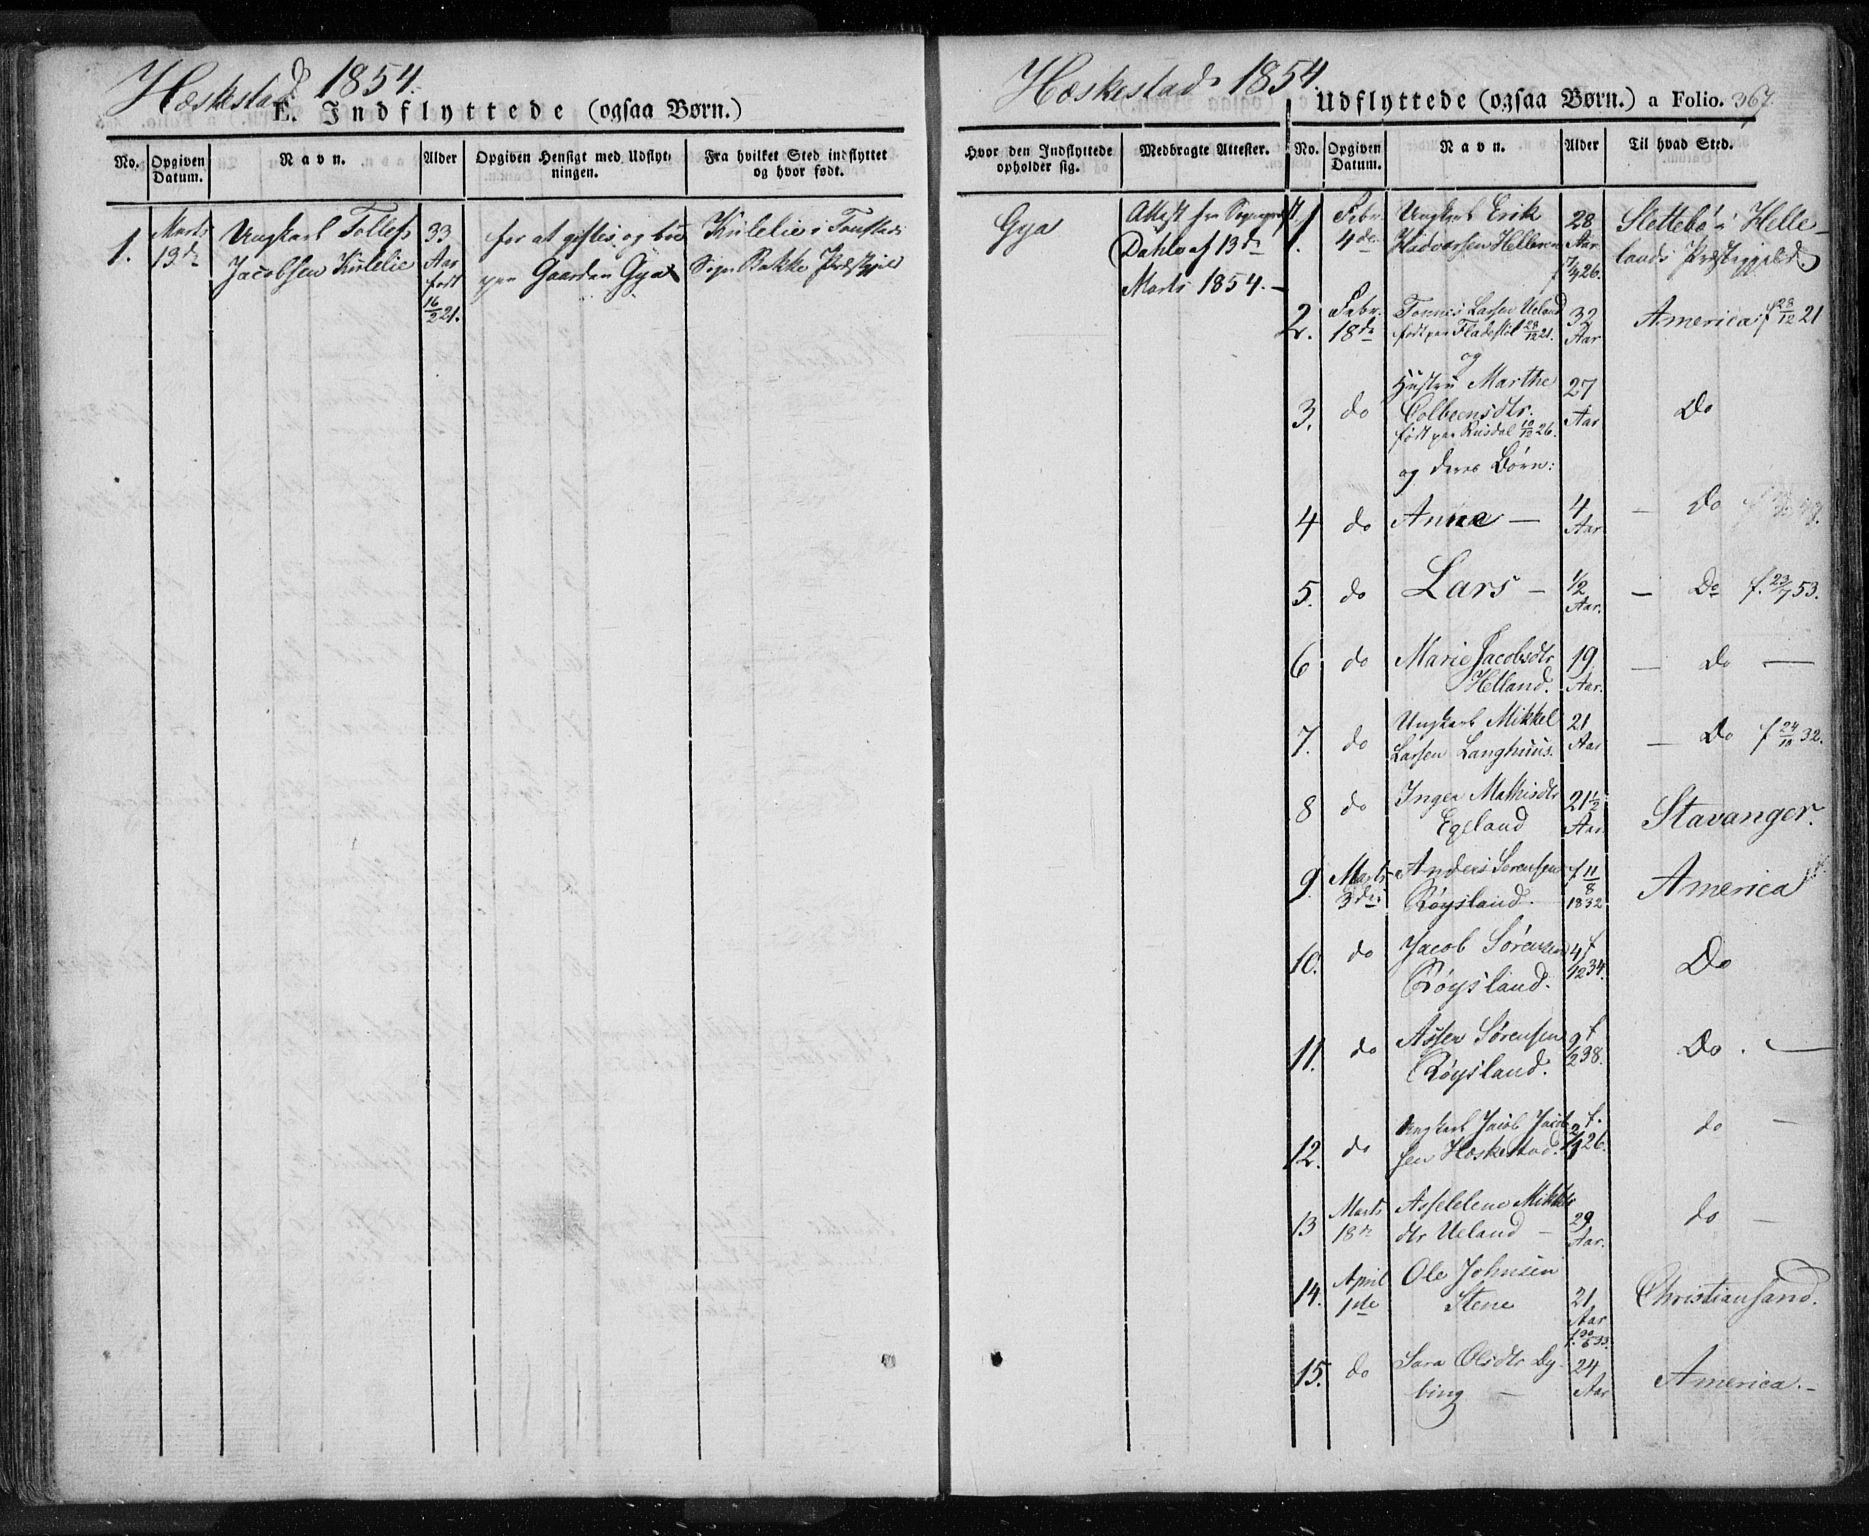 Heskestad 1854.
E. Indflyttede (ogsaa Børn.)
No. Opgiven Datum. Navn. Alder Opgiven Hensigt med Udflytningen. Fra hvilket Sted indflyttet og hvor født.
1. Marts 13de Ungkarl Tollef Jacobsen 33 Aar født 16/2 21. for at giftes og boe paa Gaarden Gya i Tonstad Sogn Bakke Præstgjeld
Heskestad 1854.
Udflyttede (ogsaa Børn.) a Folio. 367.
Hvor den Indflyttede opholder sig. Medbragte Attester. No. Opgiven Datum. Navn. Alder Til hvad Sted.
Gya Attest fra Sognepræst Dahl af 13de Marts 1854.-
1. Febr. 4de Ungkarl Erik 28 Aar Slettebö i Helle-
lands Præstegjeld
2. Febr. 18de Tønnes Larsen Ueland 32 Aar America f 28/12 21
født paa Fladestöl 28/12 21.
og
3. do Hustru Marthe 27 Aar Do
Tolbeensdtr.
født paa Rusdal 10/10 26.
og deres Börn:
4 do Anne - 4 Aar - Do
5. do Lars - 1/2 Aar. - Do f. 23/7 53.
6 do Marie Jacobsdtr 19 Aar. - Do -
Hetland.
7. do Ungkarl Mikkel 21 Aar - Do f 24/10 32.
Larsen Langhuus.
8 do Inger Mathisdtr 21 1/2 Aar Stavanger.
Egeland
9. Marts 3die Anders Sörensen f 11/8 1832 America
Röysland.
10. do Jacob Sörensen f 4/12 34. Do
Röysland.
11. do Asser Sörensen f 9/2 38. Do. -
Röysland.
12. do Ungkarl Jacob Jacob- f. 26. do -
sen Heskestad.
13 Marts 18de Asselene Mikkels- 29 Aar. do -
dtr Ueland -
14. April 1ste Ole Johnsen 21 Aar Christiansand.
Stene f. 20/6 33.
15. do Sara Olsdtr Dy- 24 Aar America.-
bing -